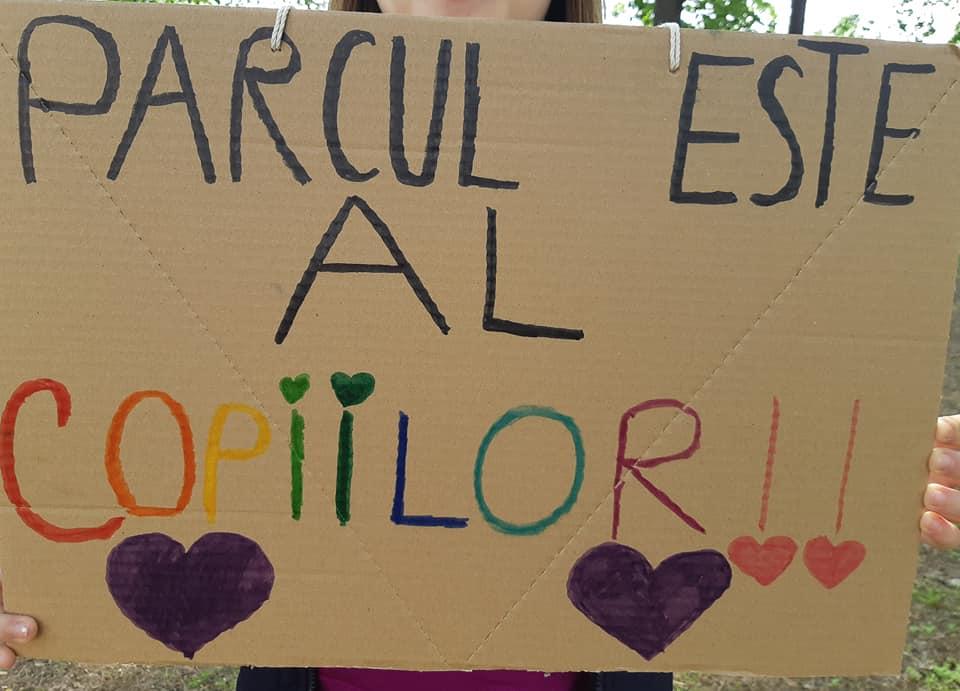 PARCUL ESTE
AL
COPiiLOR!!